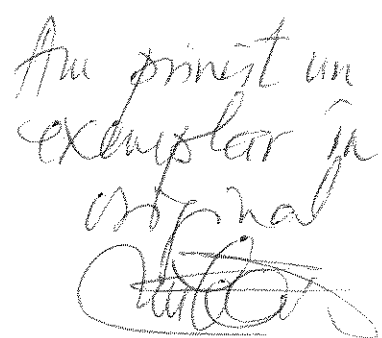 Am primit un
exemplar în
original